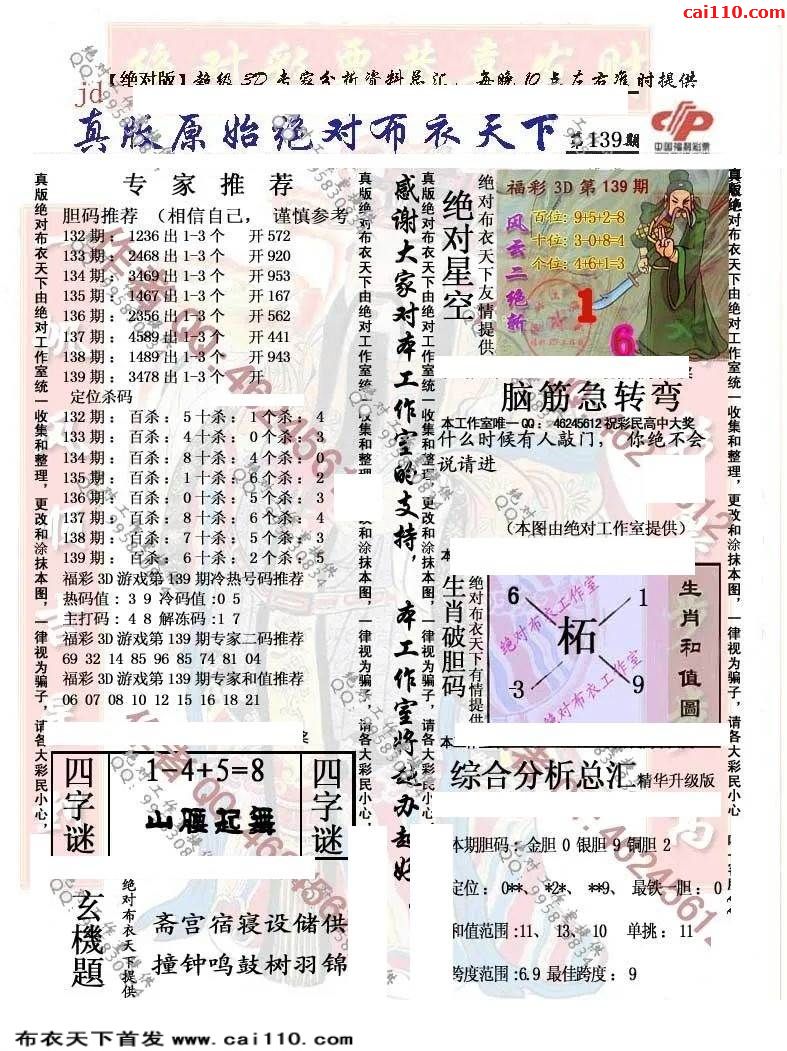 cai110.com
【绝对版】超级3D专家分析资料总汇，每晚10点左右准时提供
jd
真版原始绝对布衣天下
第139期
中国福利彩票
真版绝对布衣天下由绝对工作室统一收集和整理，更改和涂抹本图，一律视为骗子，请各大彩民小心，
专家推荐
胆码推荐 （相信自己， 谨慎参考
132 期： 1236 出 1-3 个 开 572
133 期： 2468 出 1-3 个 开 920
134 期： 3469 出 1-3 个 开 953
135 期： 1467 出 1-3 个 开 167
136 期： 2356 出 1-3 个 开 562
137 期： 4589 出 1-3 个 开 441
138 期： 1489 出 1-3 个 开 943
139 期： 3478 出 1-3 个 开
定位杀码
132 期： 百杀： 5 十杀： 1 个杀： 4
133 期： 百杀： 4 十杀： 0 个杀： 3
134 期： 百杀： 8 十杀： 4 个杀： 0
135 期： 百杀： 1 十杀： 6 个杀： 2
136 期： 百杀： 0 十杀： 5 个杀： 3
137 期： 百杀： 8 十杀： 6 个杀： 4
138 期： 百杀： 7 十杀： 5 个杀： 3
139 期： 百杀： 6 十杀： 2 个杀： 5
福彩 3D 游戏第 139 期冷热号码推荐
热码值：3 9 冷码值：0 5
主打码：4 8 解冻码：1 7
福彩 3D 游戏第 139 期专家二码推荐
69 32 14 85 96 85 74 81 04
福彩 3D 游戏第 139 期专家和值推荐
06 07 08 10 12 15 16 18 21
四字谜
1-4+5=8
山腰起舞
四字谜
玄機題
绝对布衣天下提供
斋宫宿寝设储供
撞钟鸣鼓树羽锦
感谢大家对本工作室的支持，本工作室将越办越好
真版绝对布衣天下由绝对工作室统一收集和整理，更改和涂抹本图，一律视为骗子，请各大彩民小心，
绝对星空
绝对布衣天下友情提供
福彩 3D 第 139 期
风云二绝斩
百位: 9+5+2=8
十位: 3-0+8=4
个位: 4+6+1=3
1
6
脑筋急转弯
本工作室唯一 QQ： 46245612 祝彩民高中大奖
什么时候有人敲门， 你绝不会
说请进
（本图由绝对工作室提供）
生肖破胆码
绝对布衣天下有情提供
6
1
柘
3
9
绝对布衣工作室
绝对布衣工作室
生肖和值圖
综合分析总汇 精华升级版
本期胆码： 金胆 0 银胆 9 铜胆 2
定位： 0**、 *2*、 **9、 最铁一胆： 0
和值范围:11、 13、 10 单挑： 11
跨度范围:6.9 最佳跨度： 9
真版绝对布衣天下由绝对工作室统一收集和整理，更改和涂抹本图，一律视为骗子，请各大彩民小心，
布衣天下首发 www.cai110.com